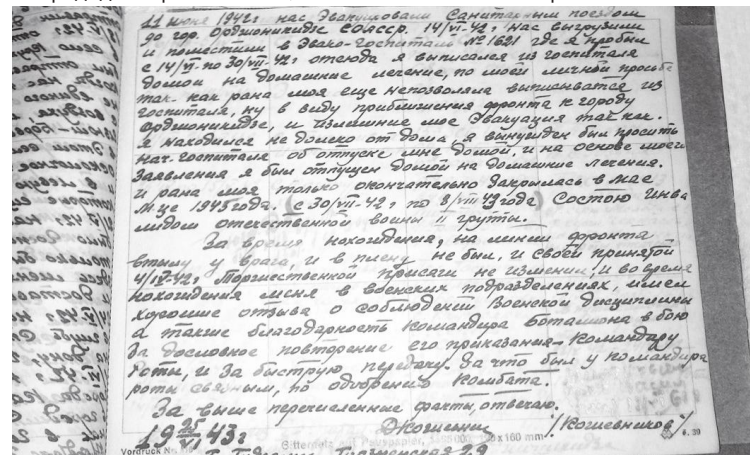 11 июня 1942г нас эвакуировали Санитарным поездом
до гор. Орджоникидзе СОАССР. 14/VI-42г нас выгрузили
и поместили в Эвако-госпиталь № 1621 где я пробыл
с 14/VI по 30/VII-42г отсюда я выписался из госпиталя
домой на домашние лечение, по моей личной просьбе
так-как рана моя еще непозволяла выписыватся из
госпиталя, ну в виду приближения фронта к городу
Орджоникидзе, и излишние мое Эвакуация так как.
я находился не далеко от дома, я вынужден был просить
нач. госпиталя об отпуске мне домой, и на основе моего
Заявления я был отпущен домой на домашние лечения.
и рана моя только окончательно закрылась в мае
м-це 1943 года. с 30/VII-42г по 8/VIII 43 года) Состою Инва
лидом отечественной войны II группы.
За время нахождения, на линии фронта
втылу у врага, и в плену не был, и своей принятой
4/IV-42г Торжественной присяги не изменил, и во время
нахождения меня в военских подразделениях, имел
хорошие отзыва о соблюдении Военской дисциплины
а также благодарность командира Боталиона в бою
За дословное повторение его приказания - командиру
Роты, и за быструю передачу. За что был у командира
роты связным, по одобрению Комбата.
За выше перечисленные факты, отвечаю.
/Кошевников/
19 25/VI 43г
Vordruck No. Gitternetz auf Pauspapier, 160 mm 6. 39
29